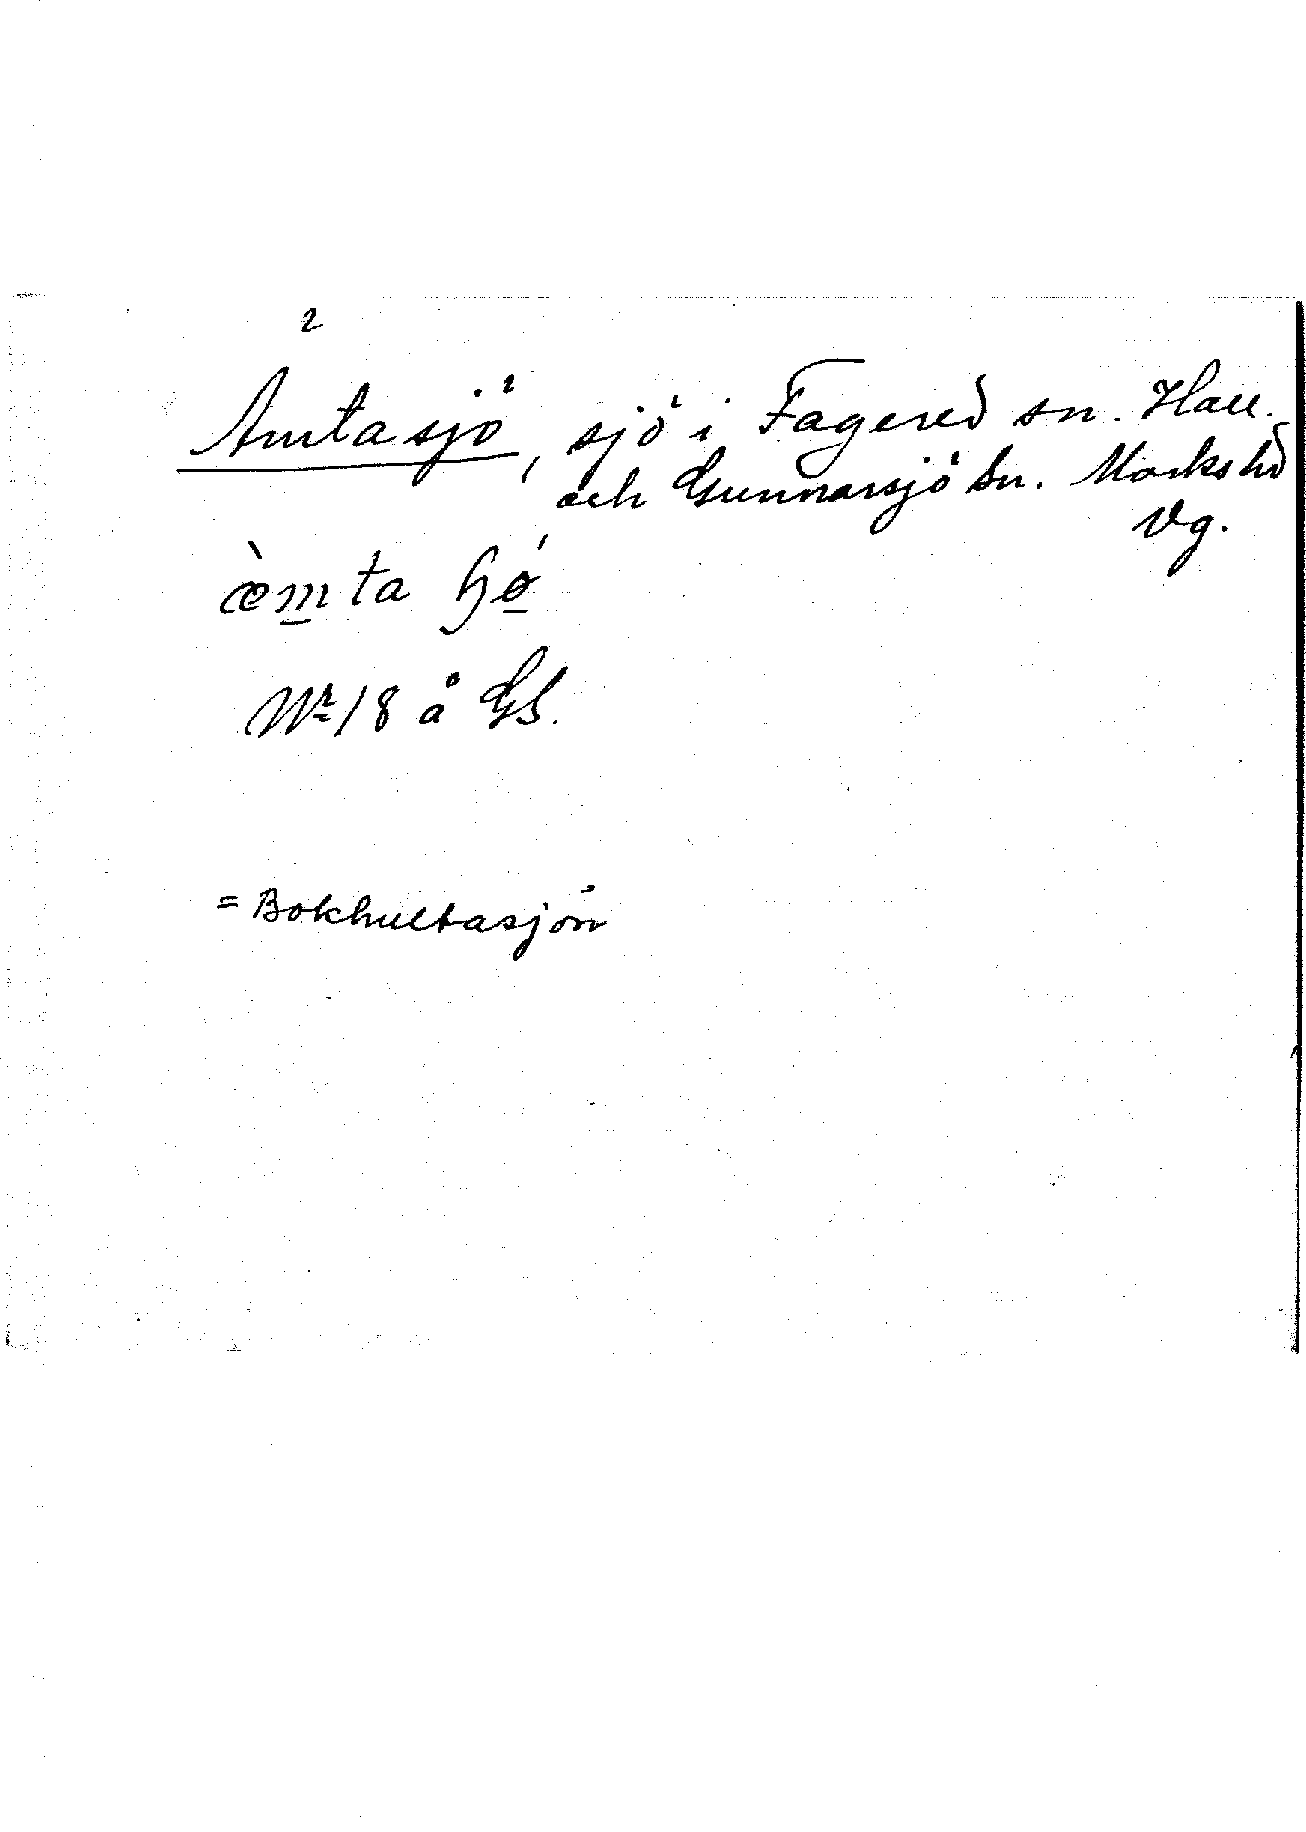 Ämtasjö, sjö i Fagered sn. Hall.
och Gunnarsjö sn. Marks hd
Vg.
æ̀m̲ta ɧǿ̲
Nr 18 å GS.
= Bokhultasjön